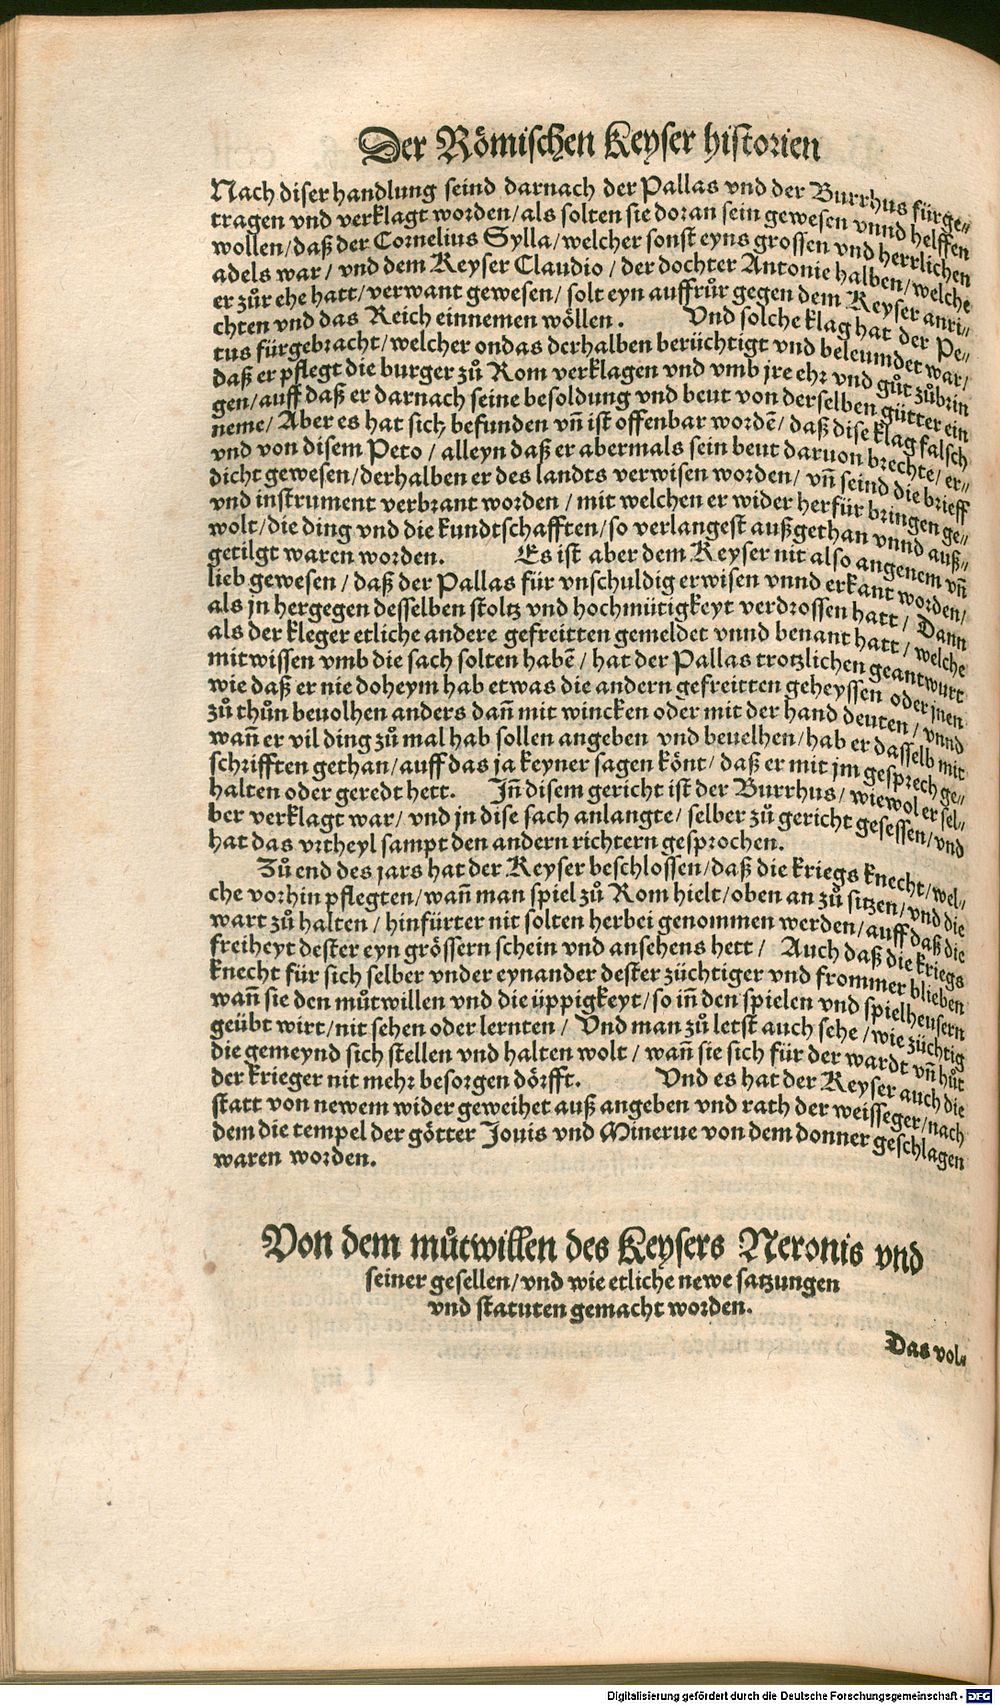 Der Römischen Keyser historien
Nach diser handlung seind darnach der Pallas vnd der Burrhus fürge⸗
tragen vnd verklagt worden/als solten sie doran sein gewesen vnnd helffen
wollen/daß der Cornelius Sylla/welcher sonst eyns grossen vnd herrlichen
adels war/ vnd dem Keyser Claudio/ der dochter Antonie halben/welche
er zůr ehe hatt/verwant gewesen/ solt eyn auffrůr gegen dem Keyser anri⸗
chten vnd das Reich einnemen wöllen. Vnd solche klag hat der Pe⸗
tus fürgebracht/welcher ondas derhalben berüchtigt vnd beleumdet war/
daß er pflegt die burger zů Rom verklagen vnd vmb jre ehr vnd gůt zůbrin
gen/auff daß er darnach seine besoldung vnd beut von derselben gütter ein
neme/ Aber es hat sich befunden vñ ist offenbar wordē/ daß dise klag falsch
vnd von disem Peto/ alleyn daß er abermals sein beut daruon brechte/ er⸗
dicht gewesen/derhalben er des landts verwisen worden/ vñ seind die brieff
vnd instrument verbrant worden/ mit welchen er wider herfür bringen ge⸗
wolt/die ding vnd die kundtschafften/so verlangest außgethan vnnd auß⸗
getilgt waren worden. Es ist aber dem Keyser nit also angenem vñ
lieb gewesen/ daß der Pallas für vnschuldig erwisen vnnd erkant worden/
als jn hergegen desselben stoltz vnd hochmütigkeyt verdrossen hatt/ Dann
als der kleger etliche andere gefreitten gemeldet vnnd benant hatt/ welche
mitwissen vmb die sach solten habē/ hat der Pallas trotzlichen geantwurt
wie daß er nie doheym hab etwas die andern gefreitten geheyssen oder jnen
zů thůn beuolhen anders dañ mit wincken oder mit der hand deuten/ vnnd
wañ er vil ding zů mal hab sollen angeben vnd beuelhen/ hab er dasselb mit
schrifften gethan/auff das ja keyner sagen könt/ daß er mit jm gesprech ge⸗
halten oder geredt hett. Jñ disem gericht ist der Burrhus/ wiewol er sel⸗
ber verklagt war/ vnd jn dise sach anlangte/ selber zů gericht gesessen/ vnd
hat das vrtheyl sampt den andern richtern gesprochen.
Zů end des jars hat der Keyser beschlossen/daß die kriegs knecht/wel⸗
che vorhin pflegten/wañ man spiel zů Rom hielt/oben an zů sitzen/vnd die
wart zů halten/ hinfürter nit solten herbei genommen werden/auff daß die
freiheyt dester eyn grössern schein vnd ansehens hett/ Auch daß die kriegs
knecht für sich selber vnder eynander dester züchtiger vnd frommer blieben
wañ sie den můtwillen vnd die üppigkeyt/so iñ den spielen vnd spielheusern
geübt wirt/nit sehen oder lernten/ Vnd man zů letst auch sehe/wie züchtig
die gemeynd sich stellen vnd halten wolt/ wañ sie sich für der wardt vñ hůt
der krieger nit mehr besorgen dörfft. Vnd es hat der Keyser auch die
statt von newem wider geweihet auß angeben vnd rath der weisseger/nach
dem die tempel der götter Jouis vnd Minerue von dem donner geschlagen
waren worden.
Von dem můtwillen des Keysers Neronis vnd
seiner gesellen/vnd wie etliche newe satzungen
vnd statuten gemacht worden.
Das vol⸗
Digitalisierung gefördert durch die Deutsche Forschungsgemeinschaft - DFG